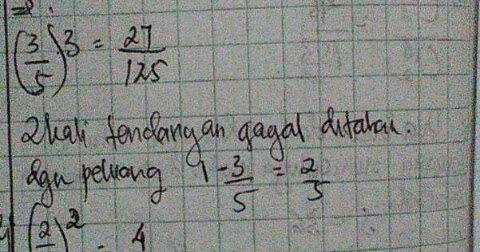 (3/5)3 = 27/125
2 kali tendangan gagal ditahan.
dgn peluang 1 - 3/5 = 2/5
(2/)2 = 4